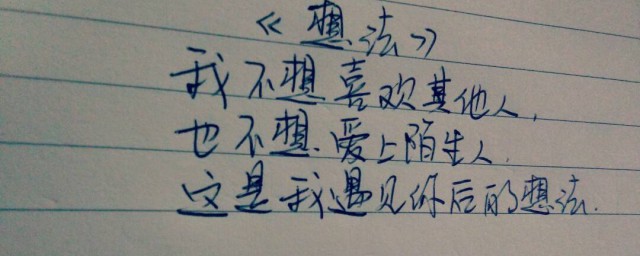 《想法》
我不想喜欢其他人，
也不想爱上陌生人.
这是我遇见你后的想法.